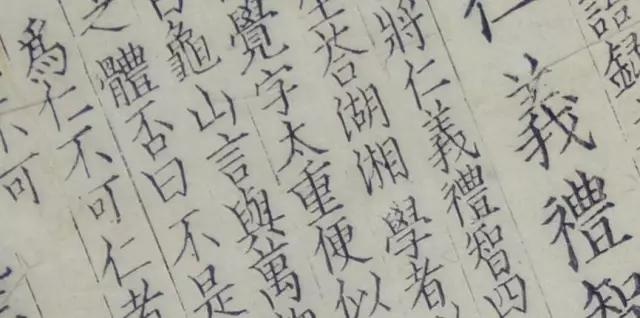 語録
仁義禮智
將仁義禮智四
答湖湘學者
覺字太重便似
龜山言與萬
體否曰不是
爲仁不可仁者
不可